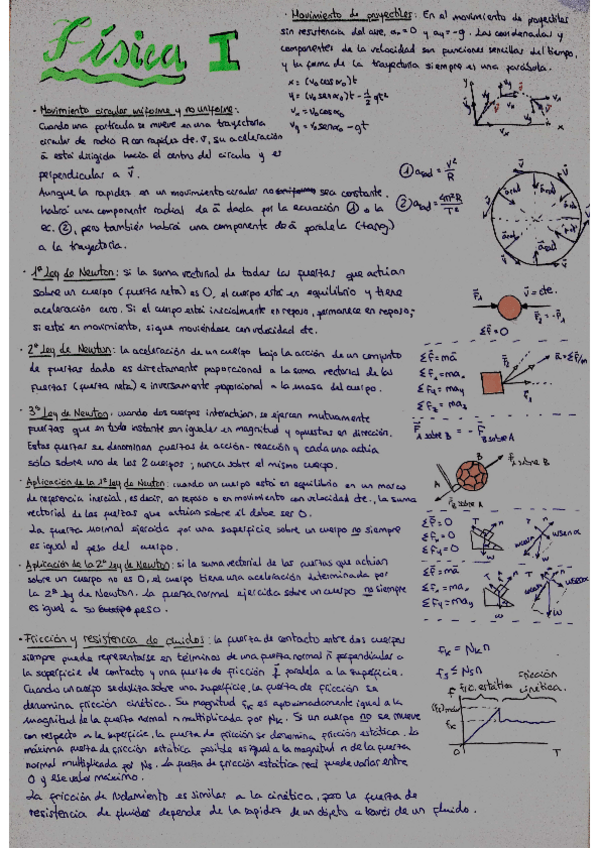 Física I
· Movimiento de proyectiles: En el movimiento de proyectiles
sin resistencia del aire, ax=0 y ay=-g. Las coordenadas y
componentes de la velocidad son funciones sencillas del tiempo,
y la forma de la trayectoria siempre es una parábola.
x = (v₀cosα₀)t
y = (v₀senα₀)t - ½gt²
vx = v₀cosα₀
vy = v₀senα₀ - gt
· Movimiento circular uniforme y no uniforme:
Cuando una partícula se mueve en una trayectoria
circular de radio R con rapidez cte. v, su aceleración
a está dirigida hacia el centro del círculo y es
perpendicular a v.
Aunque la rapidez en un movimiento circular no sea constante,
habrá una componente radial de a dada por la ecuación ① o la
ec. ②, pero también habrá una componente de a paralela (tang)
a la trayectoria.
① arad = v²/R
② arad = 4π²R/T²
· 1ª Ley de Newton: si la suma vectorial de todas las fuerzas que actúan
sobre un cuerpo (fuerza neta) es 0, el cuerpo está en equilibrio y tiene
aceleración cero. Si el cuerpo está inicialmente en reposo, permanece en reposo;
si está en movimiento, sigue moviéndose con velocidad cte.
F₁ v = cte.
F₂ = -F₁
ΣF=0
· 2ª Ley de Newton: la aceleración de un cuerpo bajo la acción de un conjunto
de fuerzas dado es directamente proporcional a la suma vectorial de las
fuerzas (fuerza neta) e inversamente proporcional a la masa del cuerpo.
ΣF=ma
ΣFx=max
ΣFy=may
ΣFz=maz
F₂ a=ΣF/m
F₁
· 3ª Ley de Newton: cuando dos cuerpos interactúan, se ejercen mutuamente
fuerzas que en todo instante son iguales en magnitud y opuestas en dirección.
Estas fuerzas se denominan fuerzas de acción-reacción y cada una actúa
sólo sobre uno de los 2 cuerpos; nunca sobre el mismo cuerpo.
FA sobre B = -FB sobre A
B FA sobre B
A
FB sobre A
· Aplicación de la 1ª Ley de Newton: cuando un cuerpo está en equilibrio en un marco
de referencia inercial, es decir, en reposo o en movimiento con velocidad cte., la suma
vectorial de las fuerzas que actúan sobre él debe ser 0.
La fuerza normal ejercida por una superficie sobre un cuerpo no siempre
es igual al peso del cuerpo.
ΣF=0
ΣFx=0
ΣFy=0
· Aplicación de la 2ª Ley de Newton: si la suma vectorial de las fuerzas que actúan
sobre un cuerpo no es 0, el cuerpo tiene una aceleración determinada por
la 2ª Ley de Newton. La fuerza normal ejercida sobre un cuerpo no siempre
es igual a su peso.
ΣF=ma
ΣFx=max
ΣFy=may
· Fricción y resistencia de fluidos: la fuerza de contacto entre dos cuerpos
siempre puede representarse en términos de una fuerza normal n perpendicular a
la superficie de contacto y una fuerza de fricción f paralela a la superficie.
Cuando un cuerpo se desliza sobre una superficie, la fuerza de fricción se
denomina fricción cinética. Su magnitud fk es aproximadamente igual a la
magnitud de la fuerza normal n multiplicada por Nk. Si un cuerpo no se mueve
con respecto a la superficie, la fuerza de fricción se denomina fricción estática. La
máxima fuerza de fricción estática posible es igual a la magnitud n de la fuerza
normal multiplicada por Ns. La fuerza de fricción estática real puede variar entre
0 y ese valor máximo.
La fricción de rodamiento es similar a la cinética, pero la fuerza de
resistencia de fluidos depende de la rapidez de un objeto a través de un fluido.
fk = Nk n
fs ≤ Ns n
f fric. estática fricción cinética.
(fs)max
fk
0 T